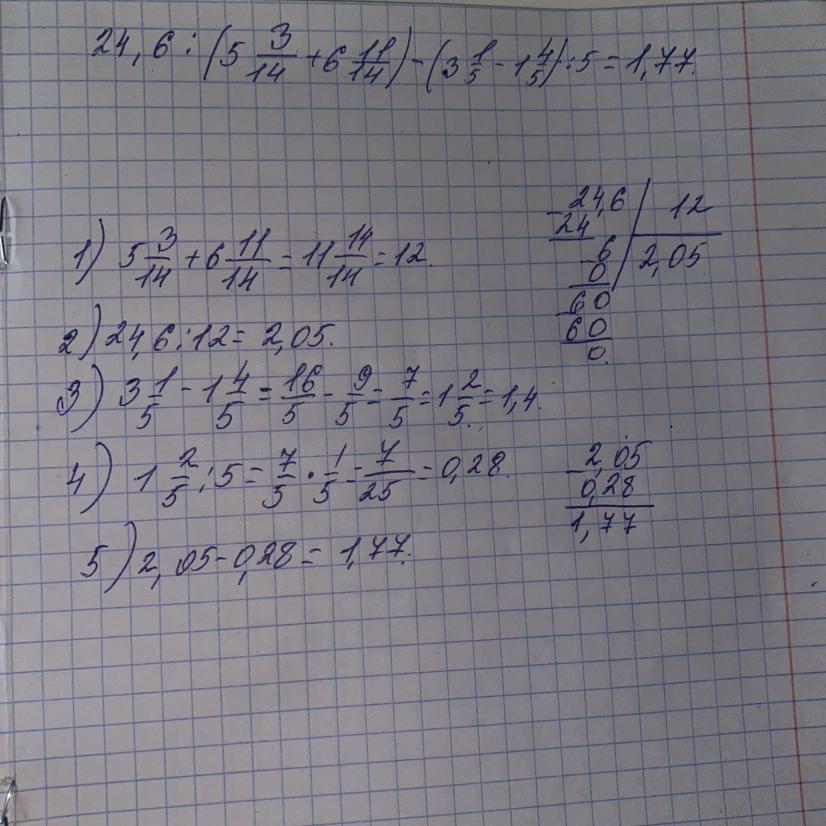 24,6 : (5 3/14 + 6 11/14) - (3 1/5 - 1 4/5) : 5 = 1,77.
1) 5 3/14 + 6 11/14 = 11 14/14 = 12.
2) 24,6 : 12 = 2,05.
3) 3 1/5 - 1 4/5 = 16/5 - 9/5 = 7/5 = 1 2/5 = 1,4.
4) 1 2/5 : 5 = 7/5 · 1/5 = 7/25 = 0,28.
5) 2,05 - 0,28 = 1,77.
- 24,6 | 12
24
2,05
- 6
0
- 60
60
0.
- 2,05
0,28
1,77